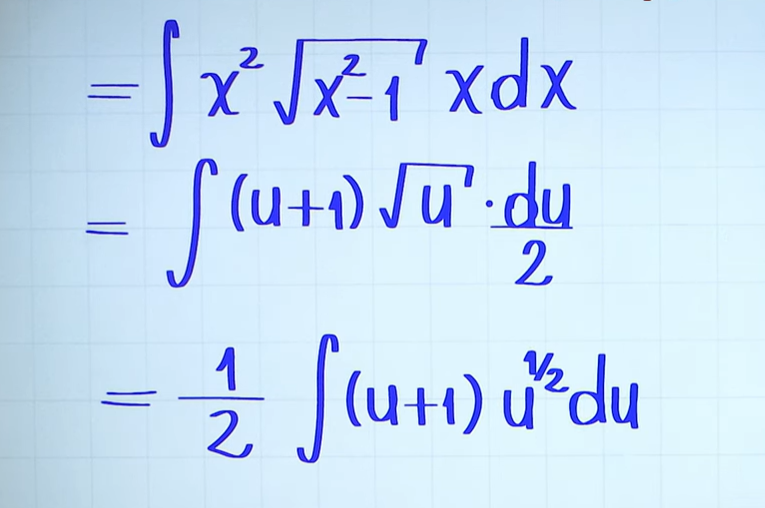 = ∫ x² √(x²-1) x dx
= ∫ (u+1) √u · du/2
= 1/2 ∫ (u+1) u^1/2 du